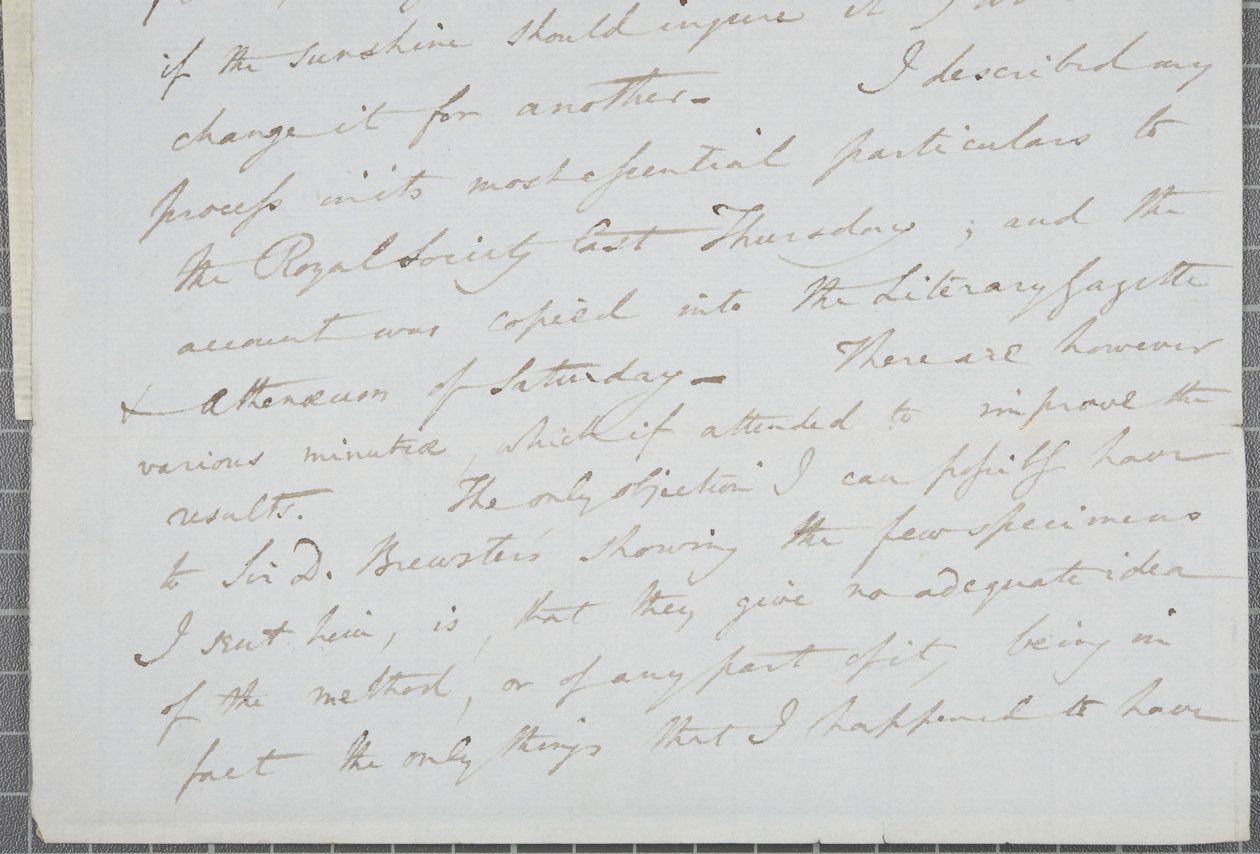 if the sunshine should injure it I
change it for another –     I described my
process in its most essential particulars to
the Royal Society last Thursday ; and the
account was copied into the Literary Gazette
& Athenæum of Saturday –     There are however
various minutiæ, which if attended to improve the
results.     The only objection I can possibly have
to Sir D. Brewster's showing the few specimens
I sent him, is, that they give no adequate idea
of the method, or of any part of it, being in
fact the only things that I happened to have